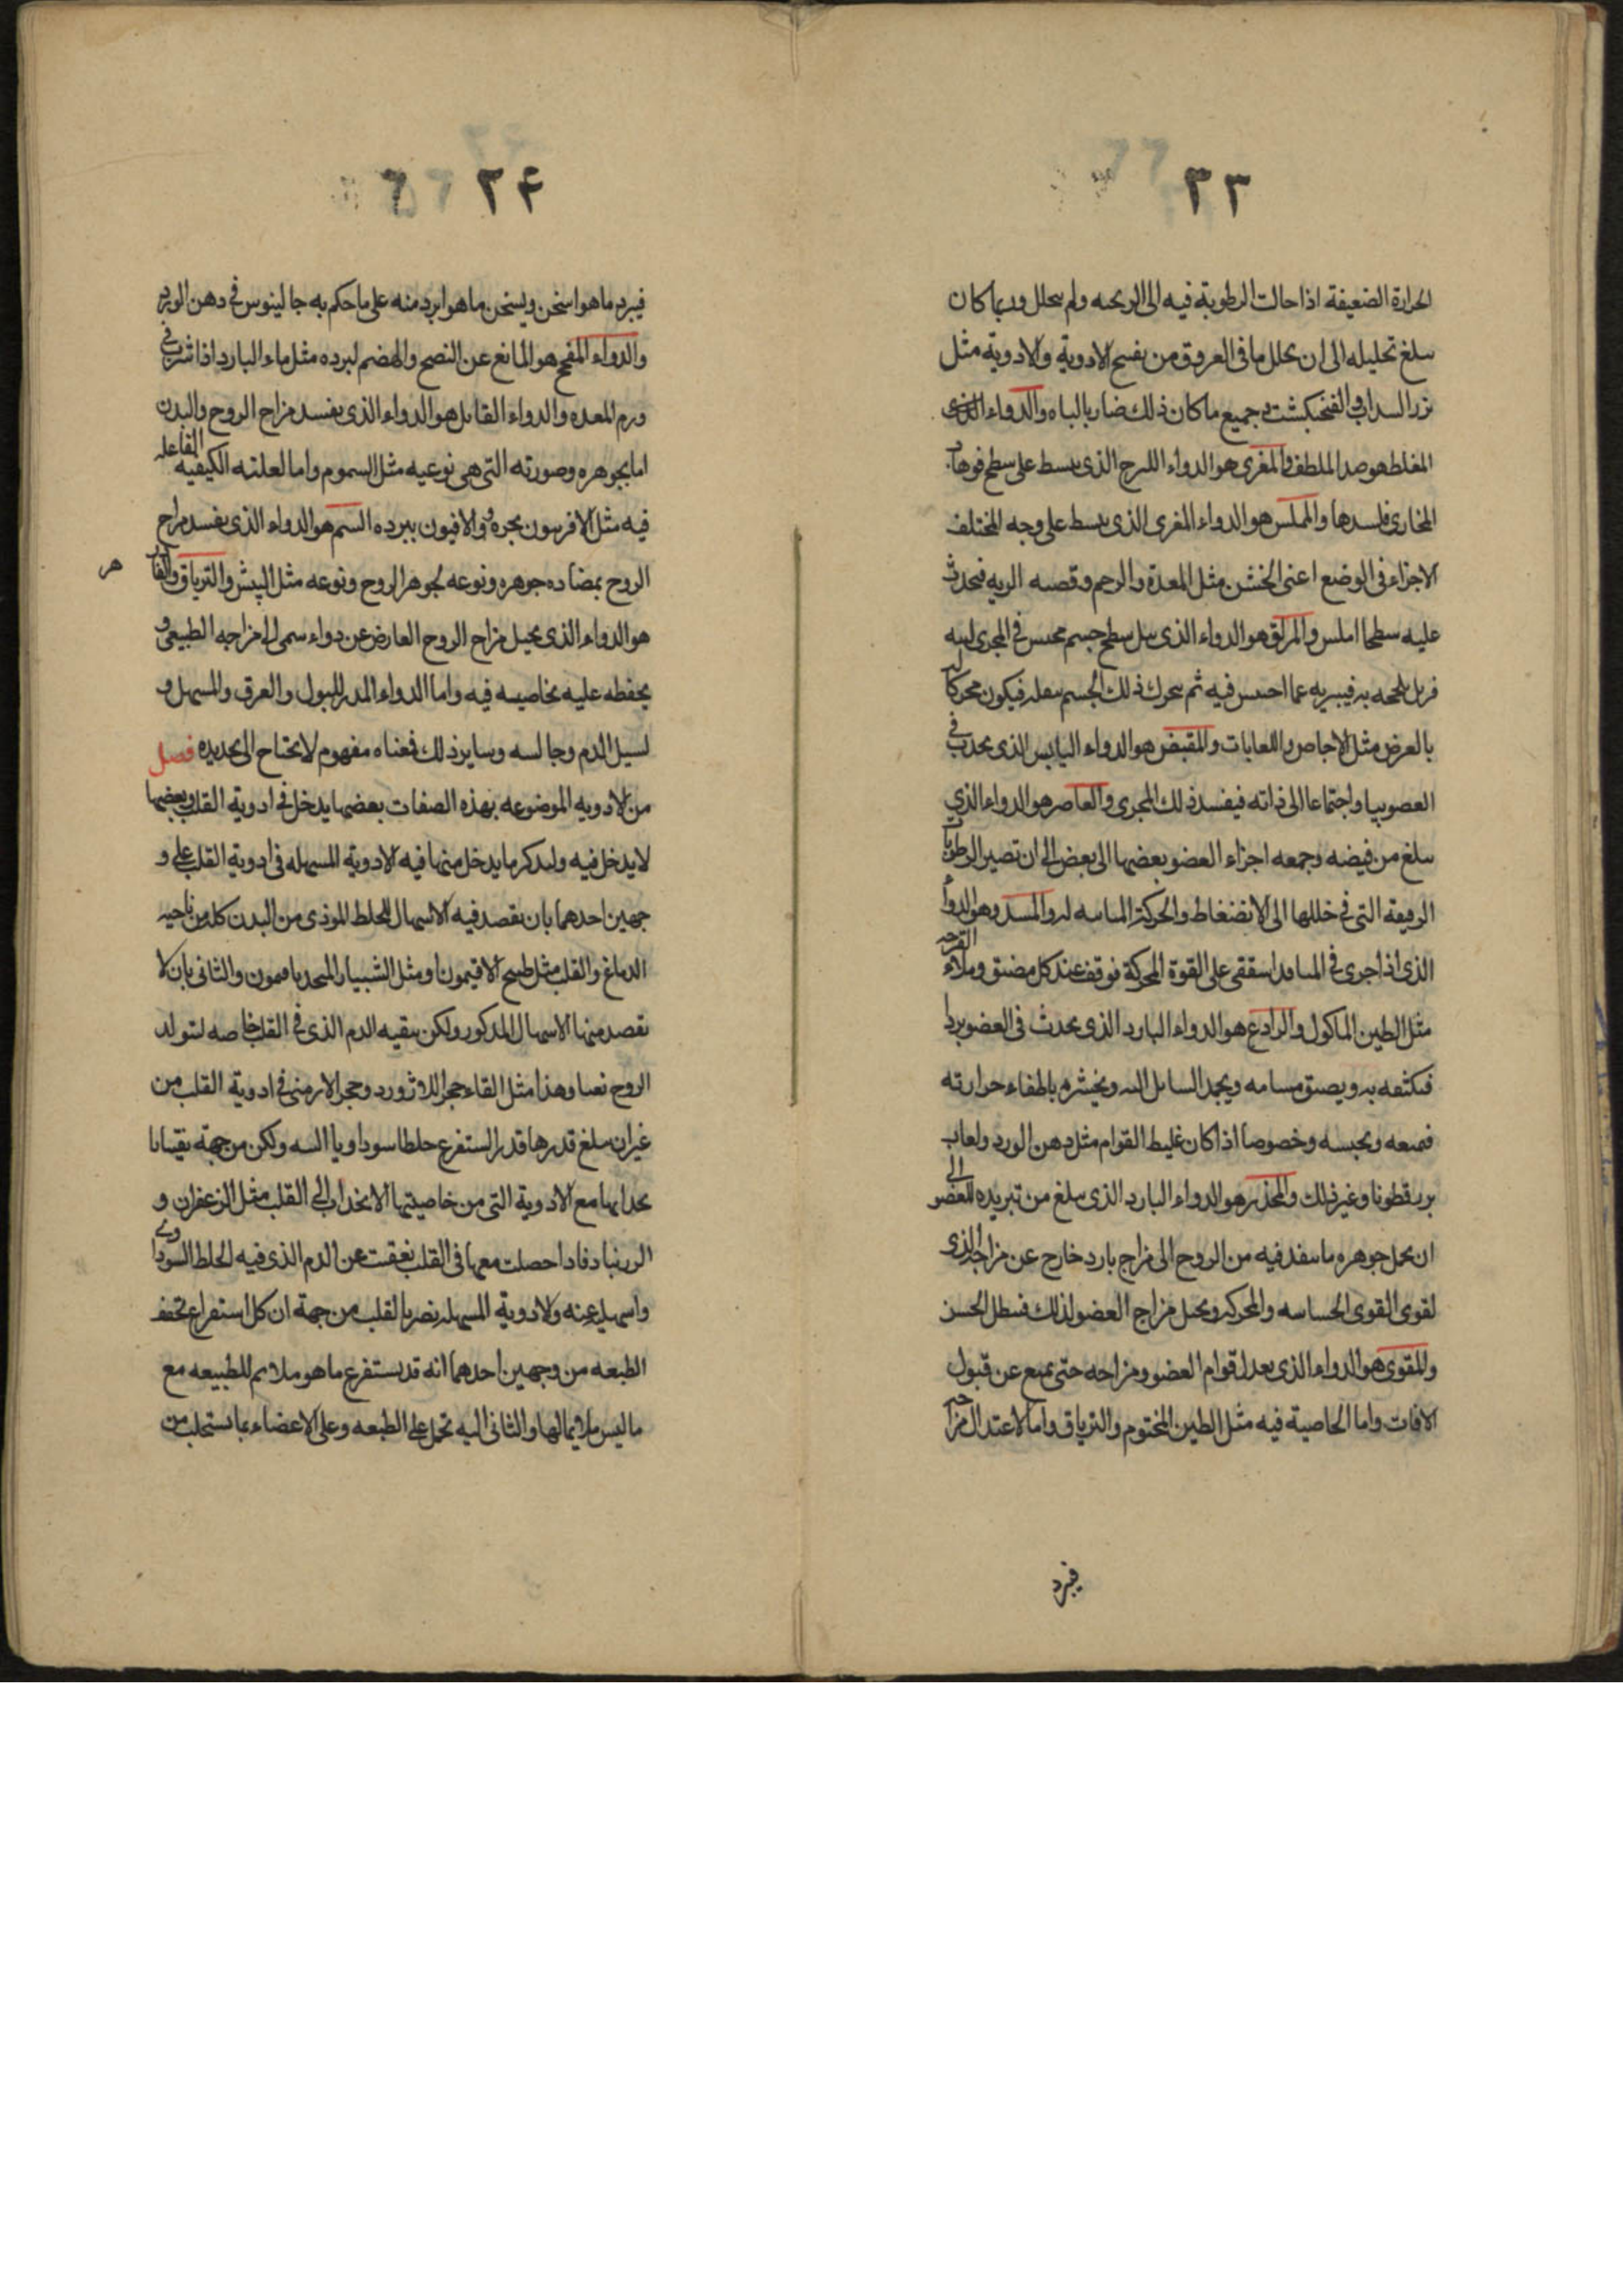 ٣٣
الحرارة الضعيفة اذا حالت الرطوبة فيه الى الريحه ولم يتحلل وربما كان
يبلغ تحليله الى ان يحلل ما فى العروق من نفخ الادوية والادوية مثل
بزر السداب والفنجنكشت وجميع ما كان ذلك ضار بالباه والدواء
المغلظ هو ضد الملطف والمغرى هو الدواء اللزج الذى ينبسط على سطح فوهات
المجارى فيسدها والمملس هو الدواء المغرى الذى ينبسط على وجه المختلف
الاجزاء فى الوضع اعنى الخشن مثل المعدة والرحم وقصبه الريه فيحدث
عليه سطحا املس والمزلق هو الدواء الذى يبل سطح جسم محتبس فى المجرى
به فيبريه عما احتبس فيه ثم يتحرك ذلك الجسم بثقله فيكون محركا له
بالعرض مثل الاجاص واللعابات والمقبض هو الدواء اليابس الذى يحدث فى
العضو يبسا واجتماعا الى ذاته فيفسد ذلك المجرى والعاصر هو الدواء الذي
يبلغ من قبضه وجمعه اجزاء العضو بعضها الى بعض الى ان تصير الرطوبات
الرقيقة التى فى خللها الى الانضغاط والحركة له والمسدد وهو الدواء
الذى اذا جرى فى المنافذ على القوة المحركة فوقف عند كل مضيق وملاء
مثل الطين الماكول والرادع هو الدواء البارد الذى يحدث فى العضو بردا
فيكثفه به ويضيق مسامه ويجمد السائل اليه ويخثره باطفاء حرارته
فيمنعه ويحبسه وخصوصا اذا كان غليظ القوام مثل دهن الورد ولعاب
بزرقطونا وغير ذلك والمخدر هو الدواء البارد الذى يبلغ من تبريده للعضو الى
ان يحيل جوهره ما ينفذ فيه من الروح الى مزاج بارد خارج عن مزاجه الذى
لقوى القوى الحساسه والمحركه ويحيل مزاج العضو لذلك فيبطل الحس
والمقوى هو الدواء الذى يعدل قوام العضو ومزاجه حتى يمنع عن قبول
الافات واما الخاصية فيه مثل الطين المختوم والترياق واما لاعتدال مزاجه
فيبرد
٣۴
فيبرد ما هو اسخن ويسخن ما هو ابرد منه على ما حكم به جالينوس فى دهن الورد
والدواء المفجج هو المانع عن النضج والهضم لبرده مثل ماء البارد اذا شرب فى
ورم المعده والدواء القاتل هو الدواء الذى يفسد مزاج الروح والبدن
اما بجوهره وصورته التى هى نوعيه مثل السموم واما لعلته الكيفيه الفاعله
فيه مثل الافربيون بحره والافيون ببرده السم هو الدواء الذى يفسد مزاج
الروح بمضاده جوهره ونوعه لجوهر الروح ونوعه مثل البيش والترياق
هو الدواء الذى يحيل مزاج الروح العارض عن دواء سمى الى مزاجه الطبيعى و
يحفظه عليه بخاصيه فيه واما الدواء المدر للبول والعرق والمسهل و
لسيل الدم وحابسه وساير ذلك فمعناه مفهوم لا يحتاج الى تحديده فصل
من الادويه الموضوعه بهذه الصفات بعضها يدخل فى ادوية القلب وبعضها
لا يدخل فيه ولنذكر ما يدخل منها فيه الادوية المسهله فى ادوية القلب على و
جهين احدهما بان يقصد فيه الاسهال للخلط الموذى من البدن كله من ناحيه
الدماغ والقلب مثل طبيخ الافيمون ومثل الشبيار المتخذ بافيمون والثانى بان لا
يقصد منها الاسهال المذكور ولكن ينقيه الدم الذى فى القلب خاصه لتولد
الروح نقيا وهذا مثل القاء حجر اللاژورد وحجر الارمنى فى ادوية القلب من
غير ان يبلغ قدرها قدر استفرغ خلطا سوداويا البته ولكن من جهة
مع الادوية التى من خاصيتها الانجذاب الى القلب مثل الزعفران و
الزرنباد فاذا حصلت معها فى القلب نقت عن الدم الذى فيه الخلط السوداوى
واسهلت عنه والادوية المسهله تضر بالقلب من جهة ان كل استفراغ
الطبعه من وجهين احدهما انه قد يستفرغ ما هو ملايم للطبيعه مع
ما ليس ملايما لها والثانى انه تحمل على الطبعه وعلى الاعضاء بما يستحلب من